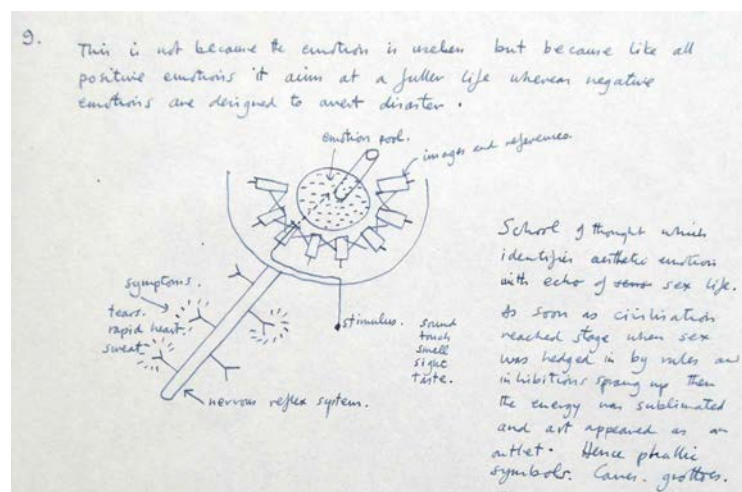 9.
This is not because the emotion is useless but because like all
positive emotions it aims at a fuller life whereas negative
emotions are designed to avert disaster.
emotion pool.
images and references.
symptoms.
tears.
rapid heart.
sweat
stimulus.
sound
touch
smell
sight
taste.
nervous reflex system.
School of thought which
identifies aesthetic emotion
with echo of sex life.
As soon as civilisation
reached stage when sex
was hedged in by rules and
inhibitions sprang up then
the energy was sublimated
and art appeared as an
outlet. Hence phallic
symbols. Caves. grottoes.